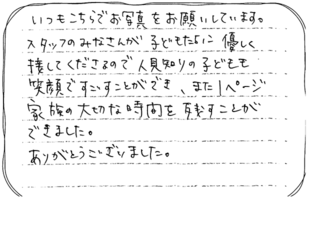 いつもこちらでお写真をお願いしています。
スタッフのみなさんが子どもたちに優しく
接してくださるので人見知りの子どもも
笑顔ですごすことができ、また1ページ
家族の大切な時間を残すことが
できました。
ありがとうございました。